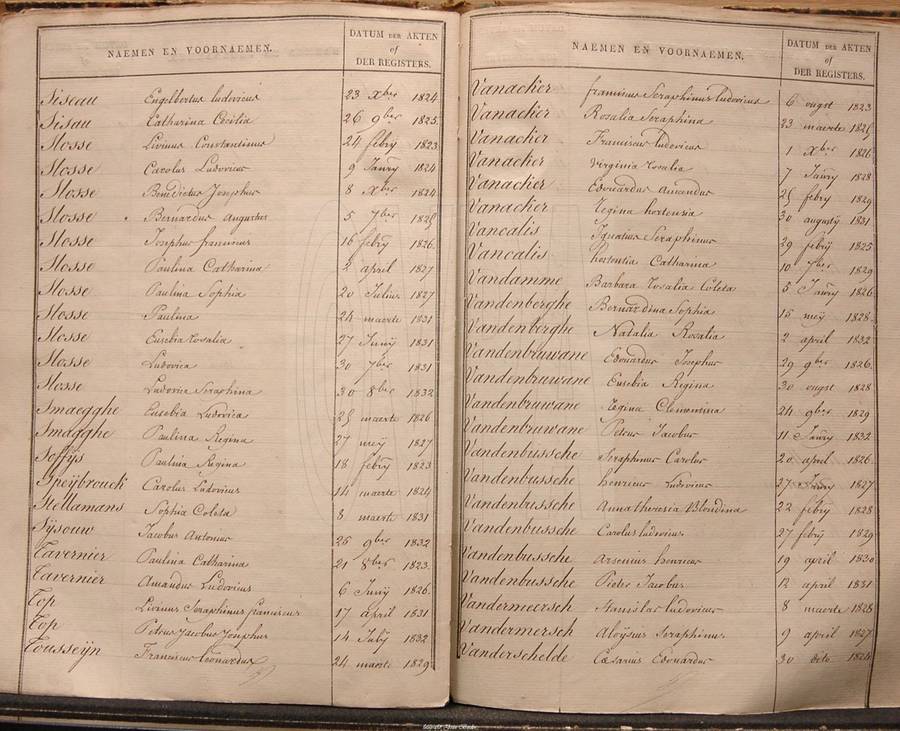 NAEMEN EN VOORNAEMEN.
DATUM DER AKTEN
of
DER REGISTERS.
Siseau Engelbertus ludovicus 23 Xber 1824
Sisau Catharina Cecilia 26 9ber 1825
Slosse Livinus Constantinus 24 febry 1823
Slosse Carolus Ludovicus 9 Jaury 1824
Slosse Benedictus Josephus 8 Xber 1824
Slosse Bernardus Augustus 5 7ber 1825
Slosse Josephus franciscus 16 febry 1826
Slosse Paulina Catharina 2 april 1827
Slosse Paulina Sophia 20 Julius 1827
Slosse Paulina 24 maerte 1831
Slosse Eusebia Rosalia 27 Junij 1831
Slosse Ludovica 30 7ber 1831
Slosse Ludovica Seraphina 30 8ber 1832
Smaegghe Eusebia Ludovica 25 maerte 1826
Smagghe Paulina Regina 27 meij 1827
Soffijs Paulina Regina 18 febry 1823
Speijbrouck Carolus Ludovicus 14 maerte 1824
Stellamans Sophia Coleta 8 maerte 1831
Sijsouw Jacobus Antonius 25 9ber 1832
Tavernier Paulina Catharina 21 8ber 1823
Tavernier Amandus Ludovicus 6 Junij 1826
Top Livinus Seraphinus franciscus 17 april 1831
Top Petrus Jacobus Josephus 14 July 1832
Tousseijn Franciscus Leonardus 24 maerte 1829
NAEMEN EN VOORNAEMEN.
DATUM DER AKTEN
of
DER REGISTERS.
Vanacker franciscus Seraphinus ludovicus 6 ougst 1823
Vanacker Rosalia Seraphina 23 maerte 1825
Vanacker Franciscus ludovicus 1 Xber 1826
Vanacker Virginia Rosalia 7 Jaury 1828
Vanacker Edouardus Amandus 25 febry 1829
Vanacker Regina hortensia 30 augustij 1831
Vancalis Ignatius Seraphinus 29 febrij 1825
Vancalis hortentia Catharina 10 7ber 1829
Vandamme Barbara Rosalia Coleta 5 Jaury 1826
Vandenberghe Bernardina Sophia 15 meij 1828
Vandenberghe Natalia Rosalia 2 april 1832
Vandenbruwane Edouardus Josephus 29 9ber 1826
Vandenbruwane Eusebia Regina 30 ougst 1828
Vandenbruwane Regina Clementina 24 9ber 1829
Vandenbruwane Petrus Jacobus 11 Jaury 1832
Vandenbussche Seraphinus Carolus 20 april 1826
Vandenbussche henricus Ludovicus 27 Jaury 1827
Vandenbussche Annatheresia Blondina 22 febry 1828
Vandenbussche Carolus ludovicus 27 febrij 1829
Vandenbussche Arsenius henricus 19 april 1830
Vandenbussche Pieter Jacobus 12 april 1831
Vandermeersch Stanislas ludovicus 8 maerte 1828
Vandermersch Aloÿsius Seraphinus 9 april 1827
Vanderschelde Cæsarius Edouardus 30 dito 1824